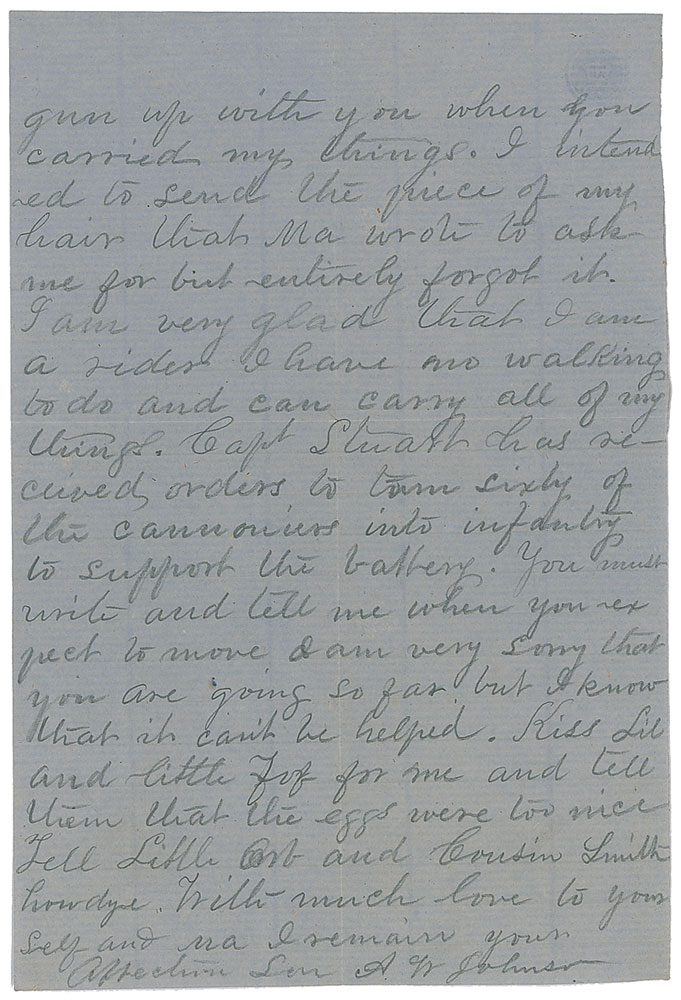 gun up with you when you
carried my things. I intend
ed to send the piece of my
hair that Ma wrote to ask
me for but entirely forgot it.
I am very glad that I am
a rider I have no walking
to do and can carry all of my
things. Capt Stuart has re-
ceived orders to turn sixty of
the cannoniers into infantry
to support the battery. You must
write and tell me when you ex
pect to move I am very sorry that
you are going so far but I know
that it can't be helped. Kiss Lil
and little for me and tell
them that the eggs were too nice
Tell Little and Cousin Smith
howdye. With much love to your
self and ma I remain your
Affection Son A W Johnson